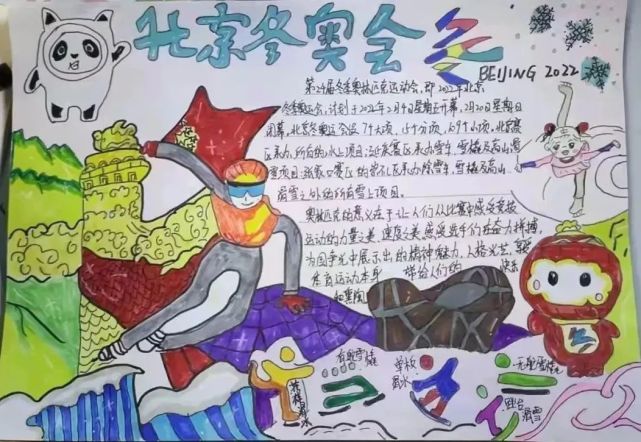 北京冬奥会
BEIJING 2022
第24届冬季奥林匹克运动会,即2022年北京
冬季奥运会,计划于2022年2月4日星期五开幕,2月20日星期日
闭幕,北京冬奥会设7个大项,15个分项,109个小项。北京赛
区承办所有的冰上项目;延庆赛区承办雪车、雪橇及高山滑
雪项目;张家口赛区的崇礼区承办除雪车、雪橇及高山
滑雪之外的所有雪上项目。
奥林匹克的意义在于让人们从比赛中感受竞技
运动的力量之美、速度之美感受选手们在奋力拼搏、
为国争光中展示出的精神魅力,人格光芒,享受
体育运动本身 带给人们的 快乐
和美闻
有舵雪橇
单板
滑冰
无舵雪橇
跳台
滑雪